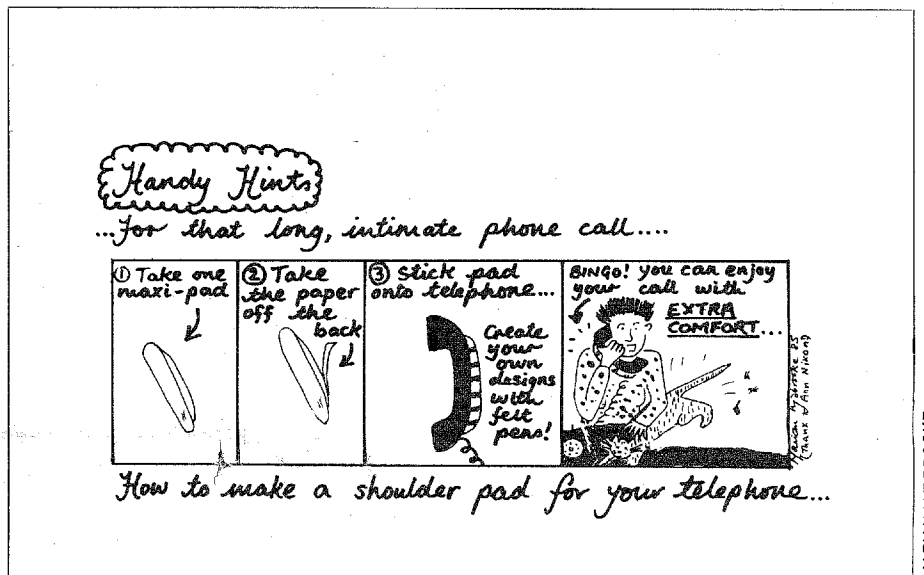 Handy Hints
...For that long, intimate phone call....
① Take one
maxi-pad
② Take
the paper
off the
back
③ Stick pad
onto telephone...
Create
your
own
designs
with
felt
pens!
BINGO! You can enjoy
your call with
EXTRA
COMFORT...
(THANX to Ann Nixon)
How to make a shoulder pad for your telephone...